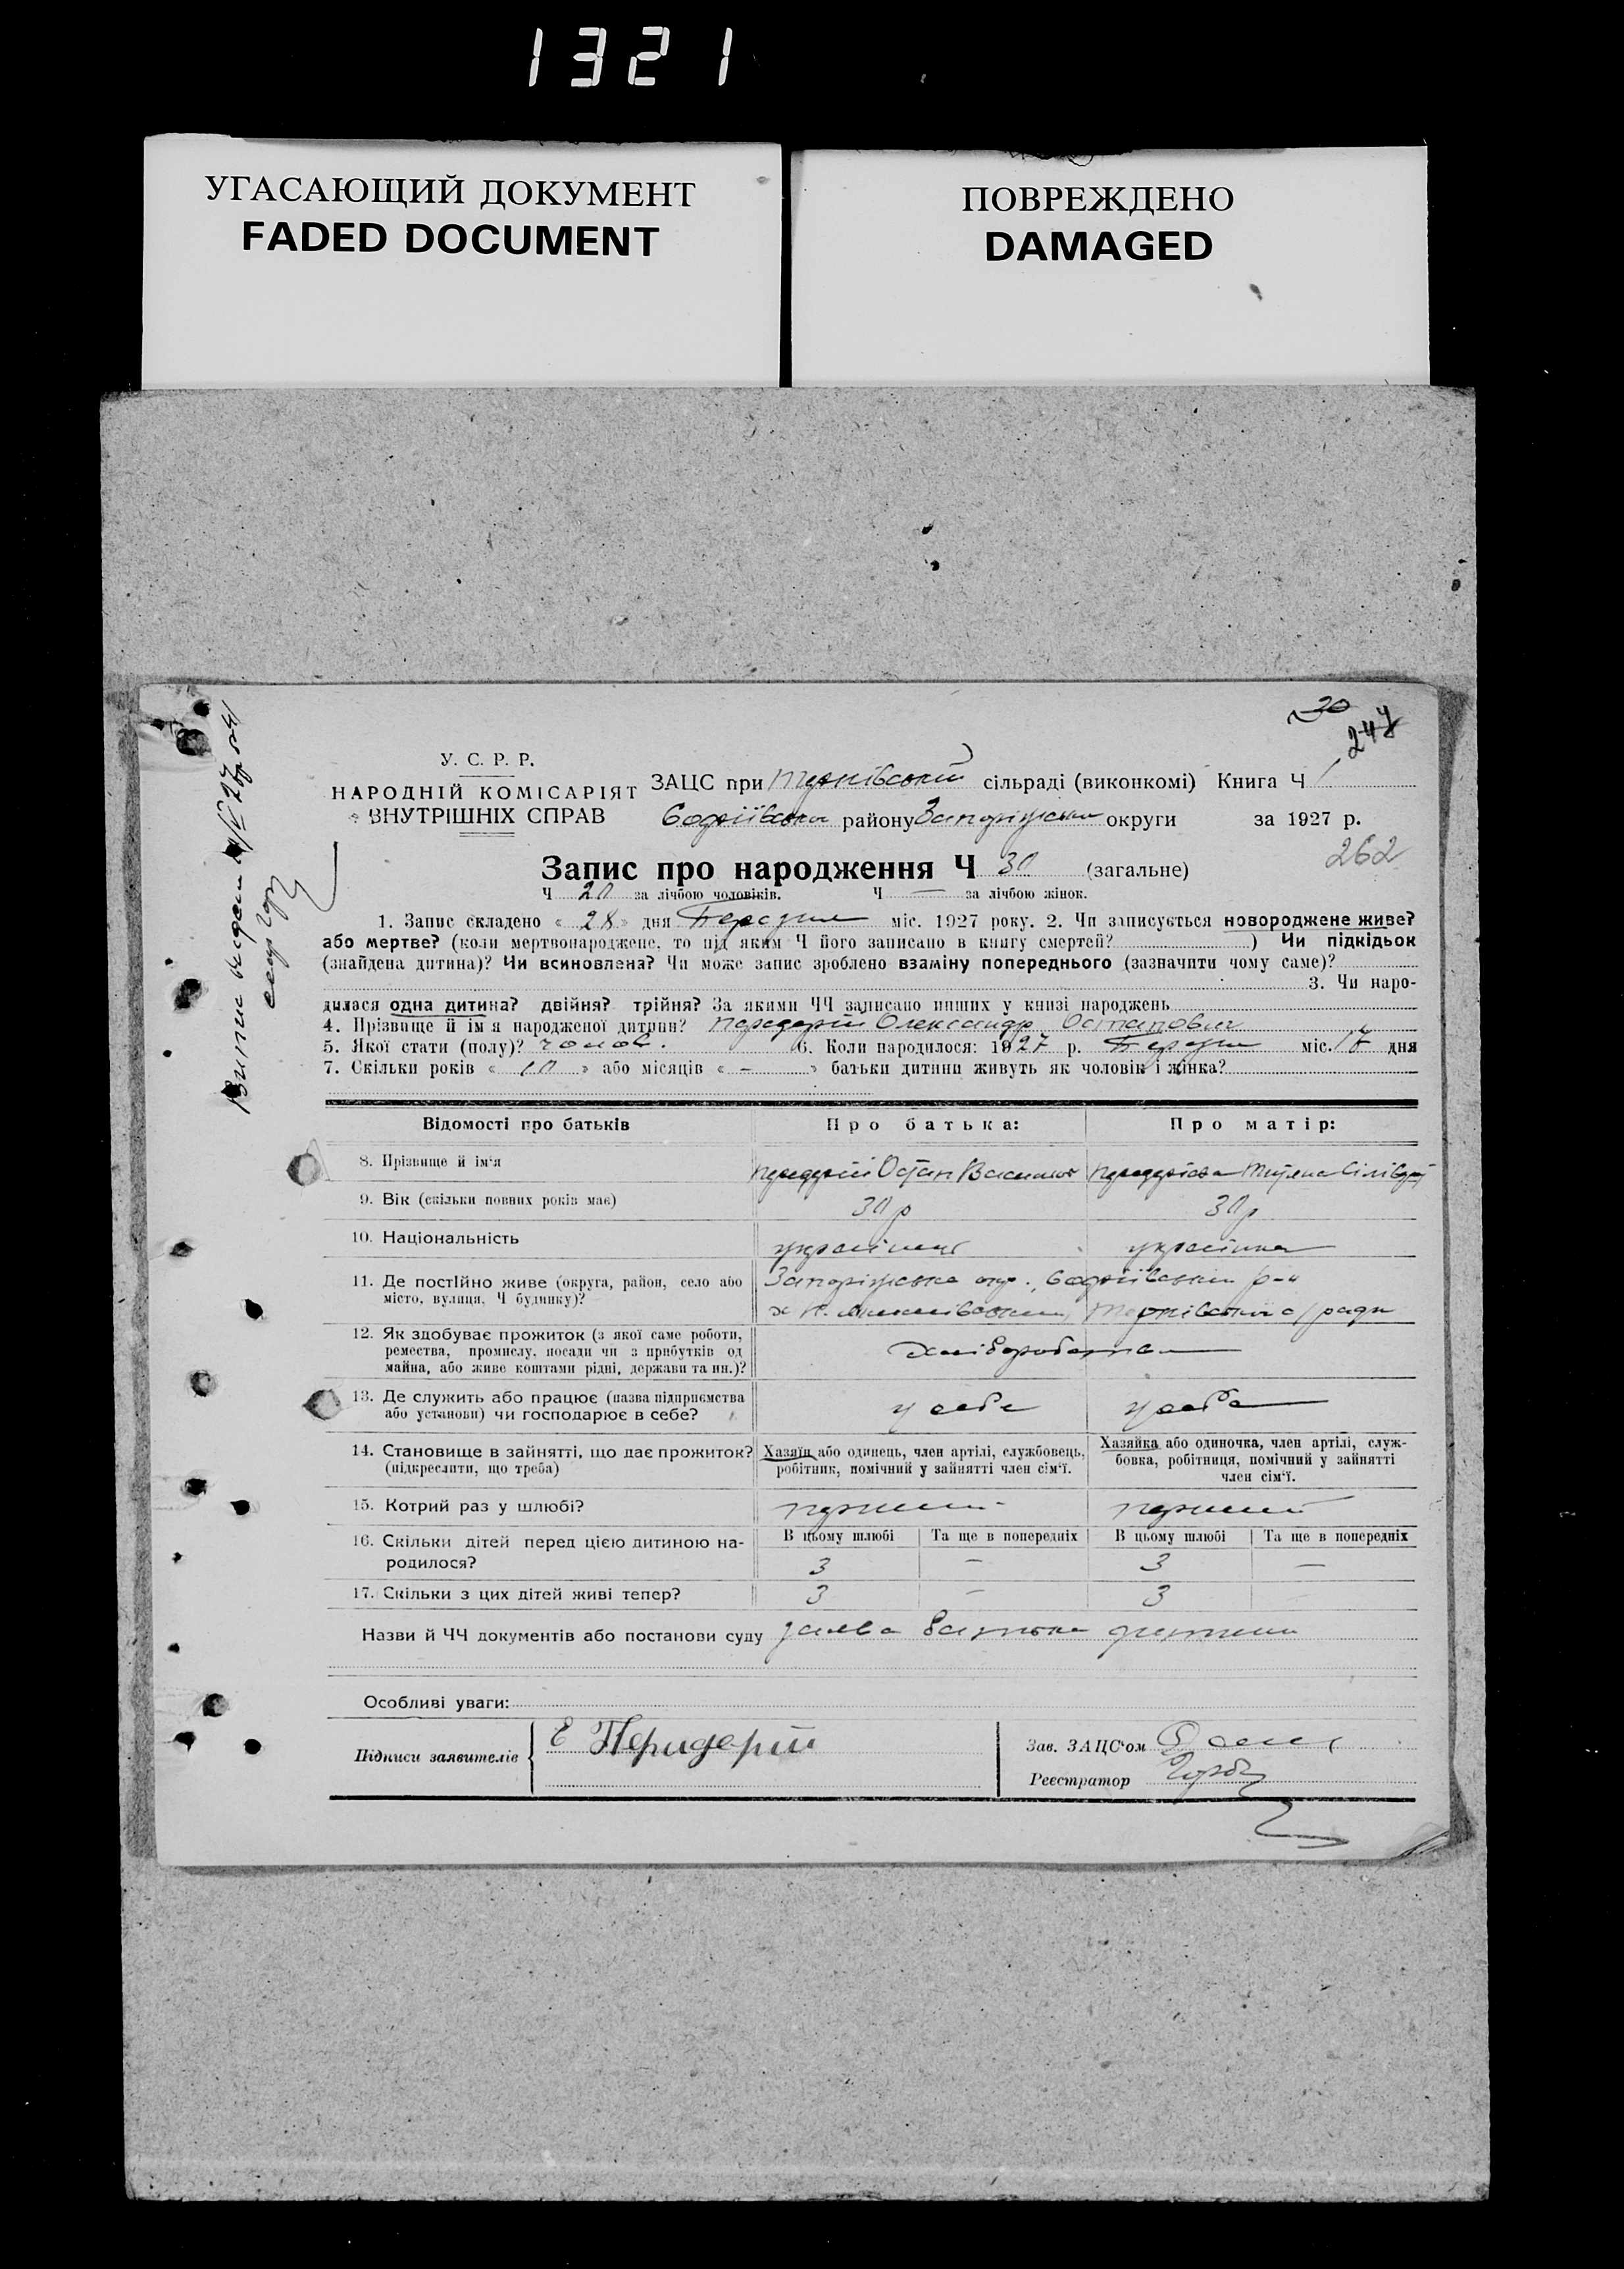 1321
УГАСАЮЩИЙ ДОКУМЕНТ
FADED DOCUMENT
ПОВРЕЖДЕНО
DAMAGED
30
247
У. С. Р. Р.
НАРОДНІЙ КОМІСАРІЯТ
ВНУТРІШНІХ СПРАВ
ЗАЦС при Тернівській сільраді (виконкомі) Книга Ч 1
району Запоріжської округи за 1927 р.
262
Запис про народження Ч 30 (загальне)
Ч 20 за лічбою чоловіків. Ч — за лічбою жінок.
1. Запис складено « 28 » дня Березня міс. 1927 року. 2. Чи записується новороджене живе?
або мертве? (коли мертвонароджене, то під яким Ч його записано в книгу смертей? ) Чи підкідьок
(знайдена дитина)? Чи всиновлена? Чи може запис зроблено взаміну попереднього (зазначити чому саме)?
3. Чи наро-
дилася одна дитина? двійня? трійня? За якими ЧЧ записано инших у книзі народжень
4. Прізвище й ім'я народженої дитини? Передерій Олександр Остапович
5. Якої стати (полу)? чолов. 6. Коли народилося: 1927 р. Березня міс. 17 дня
7. Скільки років « 10 » або місяців « – » батьки дитини живуть як чоловік і жінка?
Відомості про батьків
Про батька:
Про матір:
8. Прізвище й ім'я
Передерій Остап
9. Вік (скільки повних років має)
30 р
30 р
10. Національність
українець
українка
11. Де постійно живе (округа, район, село або
місто, вулиця, Ч будинку)?
Запоріжська окр. р-н
Тернівської с/ради
12. Як здобуває прожиток (з якої саме роботи,
ремества, промислу, посади чи з прибутків од
майна, або живе коштами рідні, держави та ин.)?
хліборобством
13. Де служить або працює (назва підприємства
або установи) чи господарює в себе?
у себе
у себе
14. Становище в зайнятті, що дає прожиток?
(підкреслити, що треба)
Хазяїн або одинець, член артілі, службовець,
робітник, помічний у зайнятті член сім'ї.
Хазяйка або одиночка, член артілі, служ-
бовка, робітниця, помічний у зайнятті
член сім'ї.
15. Котрий раз у шлюбі?
перший
перший
16. Скільки дітей перед цією дитиною на-
родилося?
В цьому шлюбі
Та ще в попередніх
В цьому шлюбі
Та ще в попередніх
3 – 3 –
17. Скільки з цих дітей живі тепер?
3 – 3
Назви й ЧЧ документів або постанови суду заява батька дитини
Особливі уваги:
Підписи заявителів
Зав. ЗАЦС'ом
Реєстратор